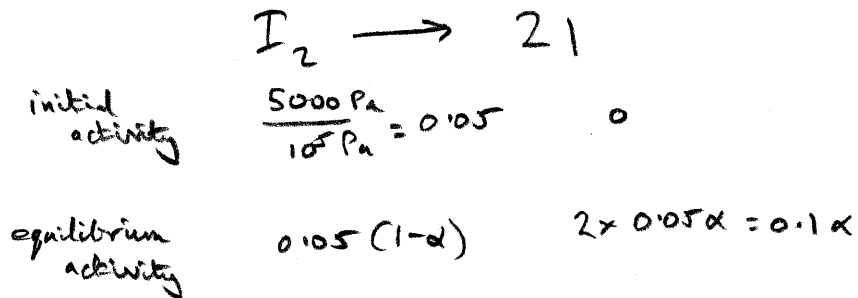 I₂ ⟶ 2I
initial activity 5000 Pa / 10⁵ Pa = 0.05 0
equilibrium activity 0.05 (1-α) 2 × 0.05α = 0.1 α